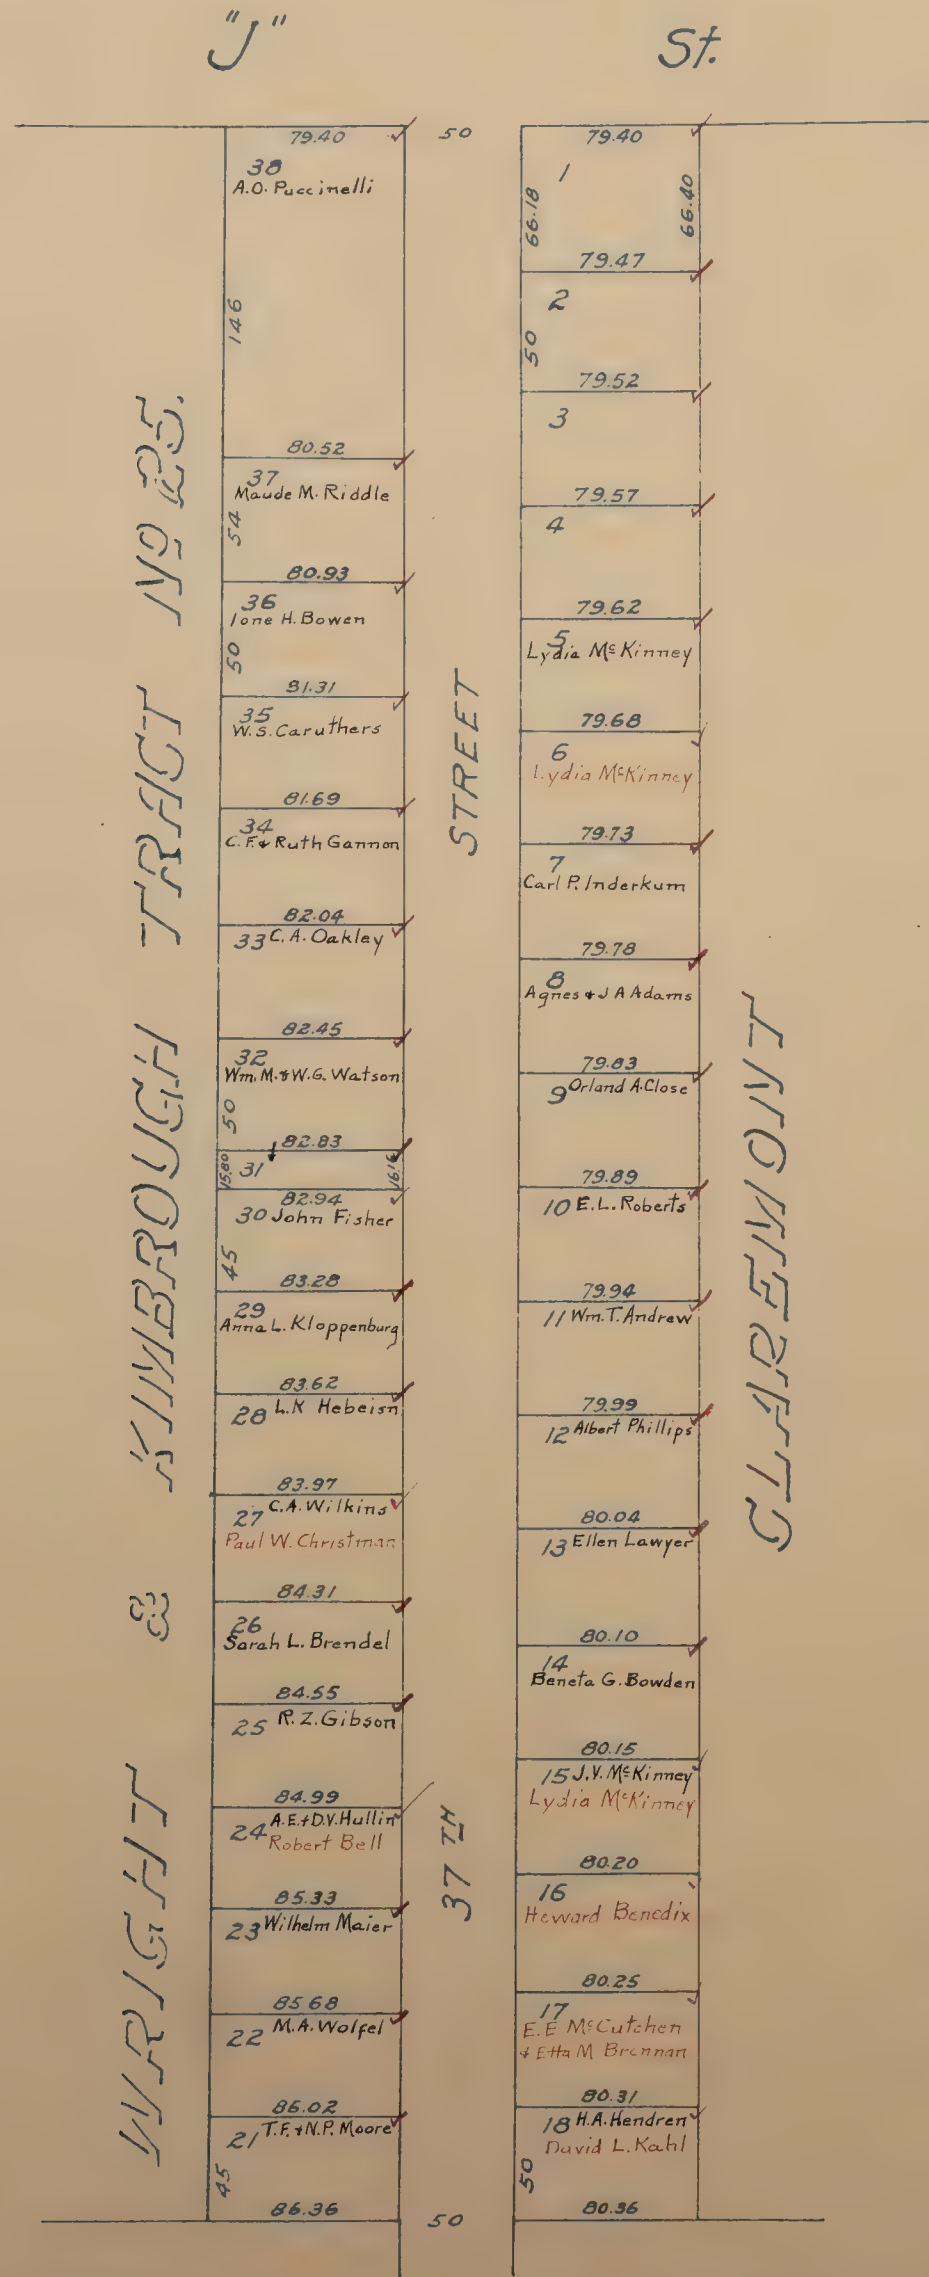 "J" St.
79.40
38
A.O. Puccinelli
146
80.52
37
Maude M. Riddle
54
80.93
36
Ione H. Bowen
50
81.31
35
W.S. Caruthers
81.69
34
C.F. & Ruth Gannon
82.04
33 C.A. Oakley
82.45
32
Wm. M. & W.G. Watson
50
82.83
15.80 31 16.16
82.94
30 John Fisher
45
83.28
29
Anna L. Kloppenburg
83.62
28 L.K Hebeisn
83.97
27 C.A. Wilkins
Paul W. Christman
84.31
26
Sarah L. Brendel
84.55
25 R.Z. Gibson
84.99
24 A.E. & D.V. Hullin
Robert Bell
85.33
23 Wilhelm Maier
85.68
22 M.A. Wolfel
86.02
21 T.F. & N.P. Moore
45
86.36
50
37TH STREET
50
79.40
1
66.18
66.40
79.47
2
50
79.52
3
79.57
4
79.62
5
Lydia McKinney
79.68
6
Lydia McKinney
79.73
7
Carl P. Inderkum
79.78
8
Agnes & J A Adams
79.83
9 Orland A. Close
79.89
10 E.L. Roberts
79.94
11 Wm. T. Andrew
79.99
12 Albert Phillips
80.04
13 Ellen Lawyer
80.10
14
Beneta G. Bowden
80.15
15 J.V. McKinney
Lydia McKinney
80.20
16
Howard Benedix
80.25
17
E.E McCutchen
& Etta M Brennan
80.31
18 H.A. Hendren
David L. Kahl
50
80.36
WRIGHT & KIMBROUGH TRACT No 25.
CLAREMONT